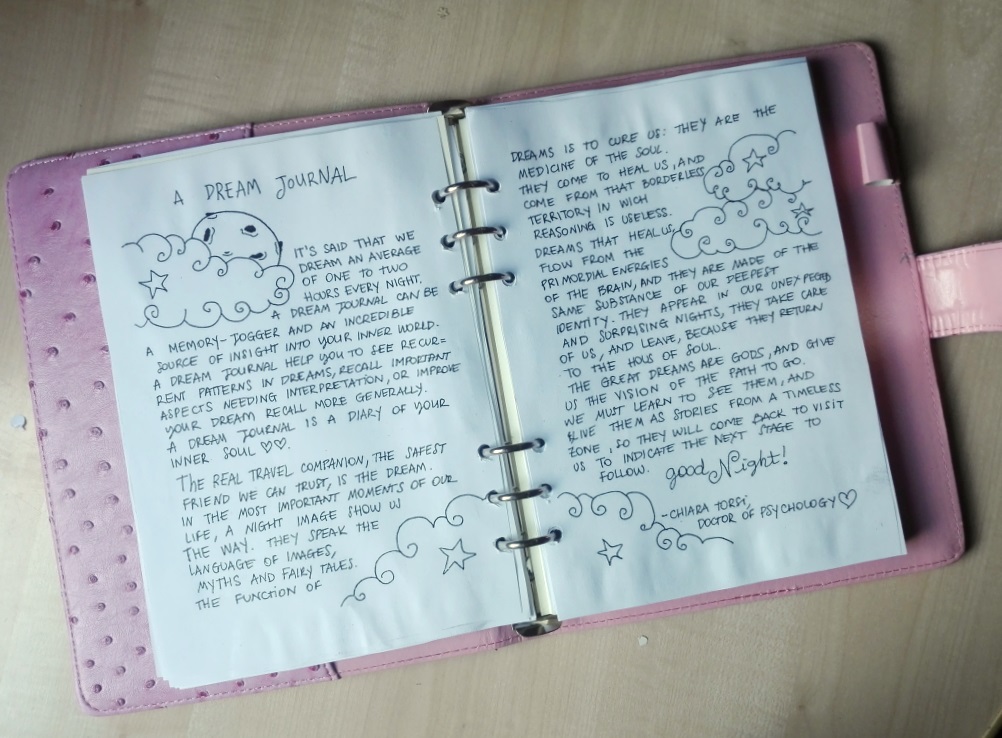 A DREAM JOURNAL
IT'S SAID THAT WE
DREAM AN AVERAGE
OF ONE TO TWO
HOURS EVERY NIGHT.
A DREAM JOURNAL CAN BE
A MEMORY-JOGGER AND AN INCREDIBLE
SOURCE OF INSIGHT INTO YOUR INNER WORLD.
A DREAM JOURNAL HELP YOU TO SEE RECUR=
RENT PATTERNS IN DREAMS, RECALL IMPORTANT
ASPECTS NEEDING INTERPRETATION, OR IMPROVE
YOUR DREAM RECALL MORE GENERALLY.
A DREAM JOURNAL IS A DIARY OF YOUR
INNER SOUL ♡♡.
THE REAL TRAVEL COMPANION, THE SAFEST
FRIEND WE CAN TRUST, IS THE DREAM.
IN THE MOST IMPORTANT MOMENTS OF OUR
LIFE, A NIGHT IMAGE SHOW US
THE WAY. THEY SPEAK THE
LANGUAGE OF IMAGES,
MYTHS AND FAIRY TALES.
THE FUNCTION OF
DREAMS IS TO CURE US: THEY ARE THE
MEDICINE OF THE SOUL.
THEY COME TO HEAL US, AND
COME FROM THAT BORDERLESS
TERRITORY IN WICH
REASONING IS USELESS.
DREAMS THAT HEAL US,
FLOW FROM THE
PRIMORDIAL ENERGIES
OF THE BRAIN, AND THEY ARE MADE OF THE
SAME SUBSTANCE OF OUR DEEPEST
IDENTITY. THEY APPEAR IN OUR UNEXPECED
AND SURPRISING NIGHTS, THEY TAKE CARE
OF US, AND LEAVE, BECAUSE THEY RETURN
TO THE HOUS OF SOUL.
THE GREAT DREAMS ARE GODS, AND GIVE
US THE VISION OF THE PATH TO GO.
WE MUST LEARN TO SEE THEM, AND
LIVE THEM AS STORIES FROM A TIMELESS
ZONE, SO THEY WILL COME BACK TO VISIT
US TO INDICATE THE NEXT STAGE TO
FOLLOW. good Night!
-CHIARA TORSI,
DOCTOR OF PSYCHOLOGY ♡